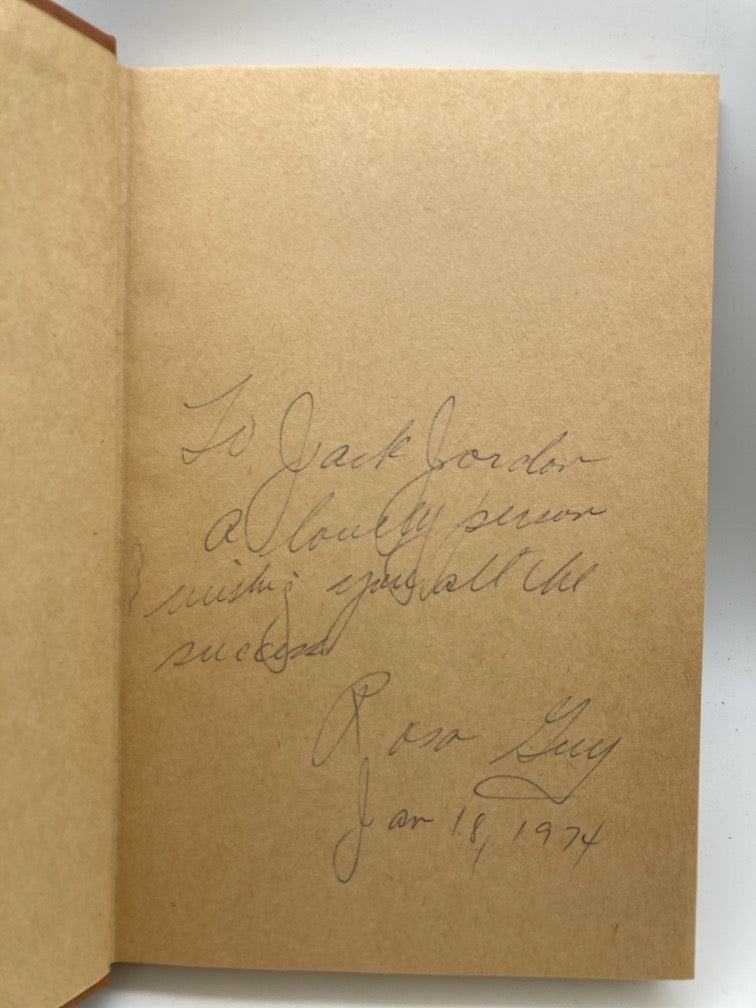 To Jack Jordon
a lovely person
wishing you all the
success
Rosa Guy
Jan 18, 1974